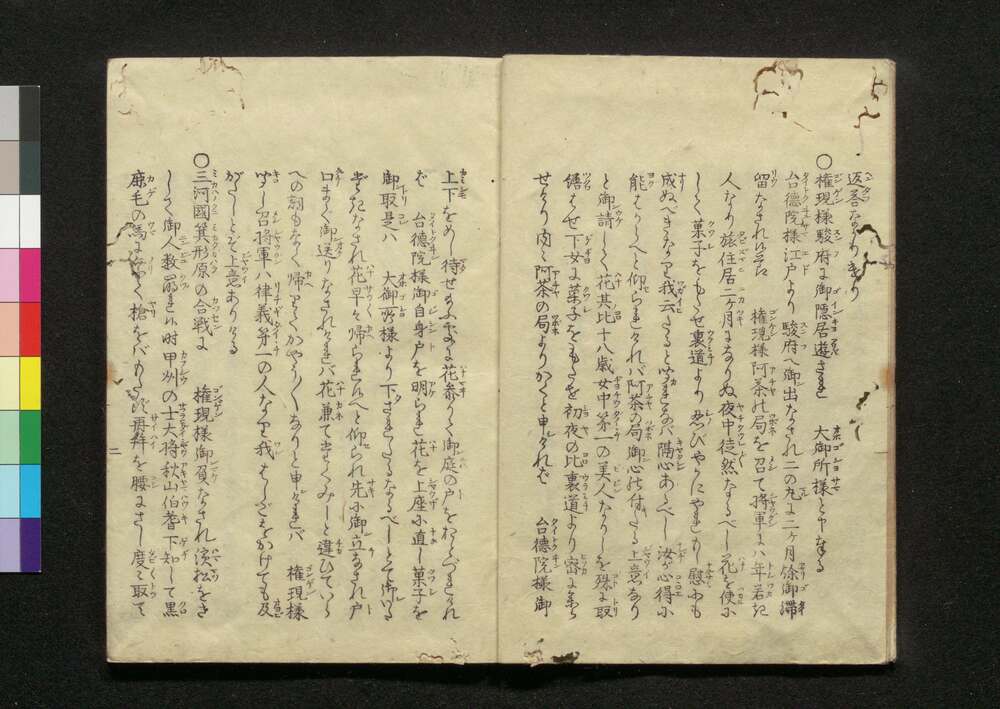 返答なされけり
〇権現様駿府に御隠居遊され 大御所様と申奉る
台徳院様江戸より 駿府へ御出なされ二の丸に二ヶ月余御滞
留なされ候 権現様阿茶の局を召て将軍ハ年若き
人なり旅住居二ヶ月になりぬ夜中徒然なるべし花を使に
して菓子をもたせ裏道より忍びやかにやれもし慰にも
成ぬべきなり我云たると聞るならバ隔心あるべし汝が心得に
能はからへと仰られけれバ阿茶の局御心の付たる上意なり
と御請して花其比十八歳女中第一の美人なりしを殊に取
繕はせ下女に菓子をもたせ初夜の比裏道より密に参ら
せけり内々阿茶の局よりかくと申けれバ 台徳院様御
上下をめし待せ給ふ花参りて御庭の戸をおとづれけれ
ば 台徳院様御自身戸を明られ花を上座に直し菓子を
御取是ハ 大御所様より下されたるなるべしとて御いた
だきなされ花早々帰られ候へと仰られ先に御立なされ戸
口まで御送りなされけれバ花兼て 違ひていら
への詞もなく帰りてかやう〱なりと申けれバ 権現様
聞し召将軍ハ律義第一の人なり我はしごをかけても及
がたしとぞ上意ありける
〇三河國箕形原の合戦に 権現様御負なされ濱松をさ
して御人数 時甲州の士大将秋山伯耆下知して黒
鹿毛の馬に 槍をバもたず再拝を腰にさし度々取て
二